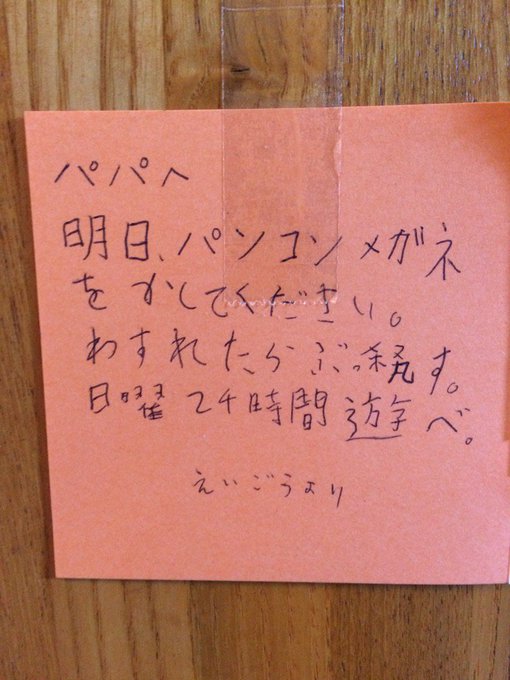 パパへ
明日、パソコンメガネ
をかしてください。
わすれたらぶっ殺す。
日曜24時間遊べ。
えいごうより